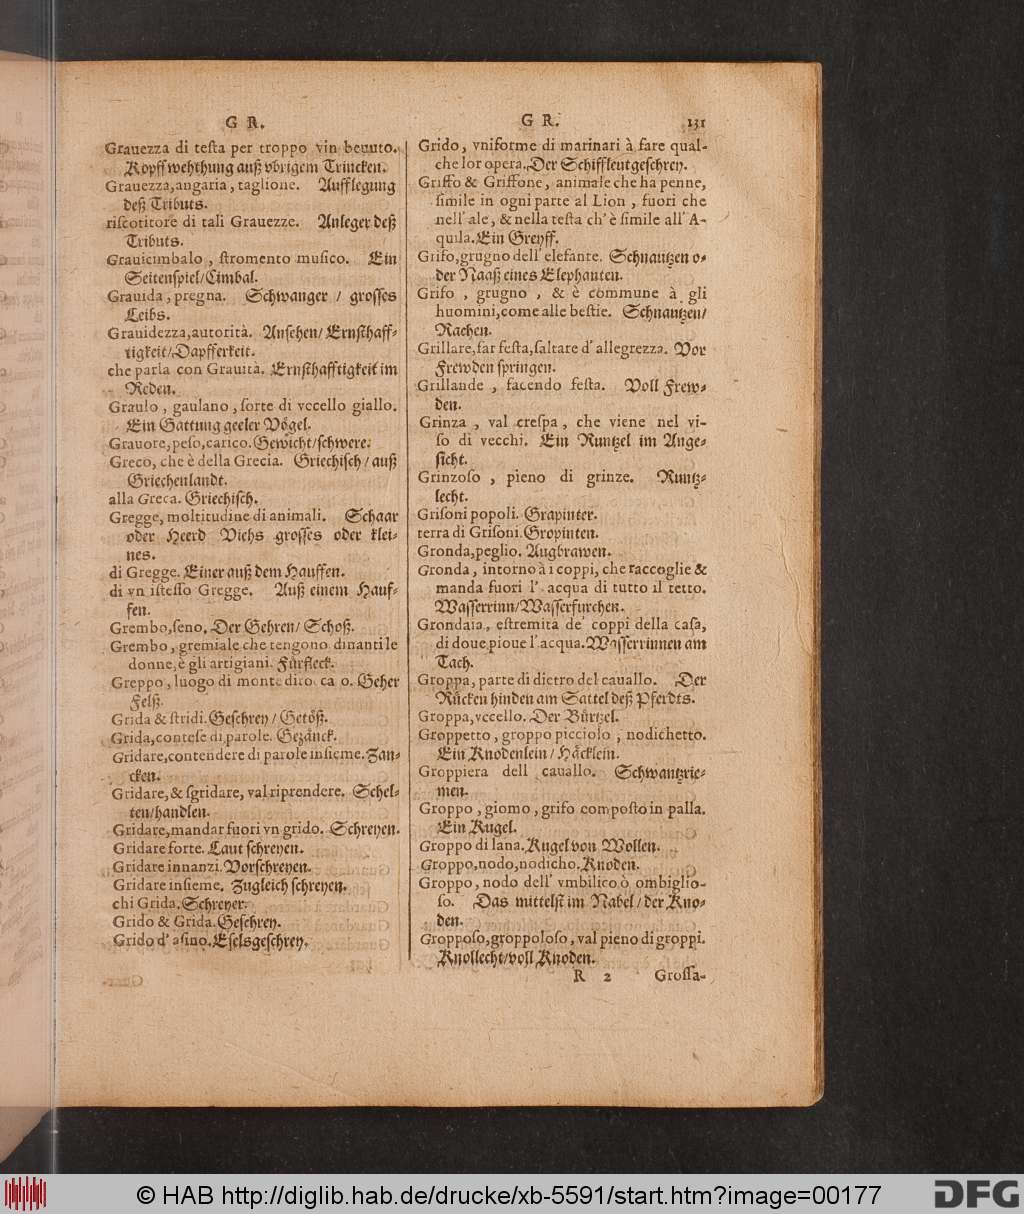 G R.
Grauezza di testa per troppo vin beuuto.
Kopffwehthung auß vbrigem Trincken.
Grauezza, angaria, taglione. Aufflegung
deß Tributs.
riscotitore di tali Grauezze. Anleger deß
Tributs.
Grauicimbalo, stromento musico. Ein
Seitenspiel/Cimbal.
Grauida, pregna. Schwanger / grosses
Leibs.
Grauidezza, autorità. Ansehen/ Ernsthaff-
tigkeit/Dapfferkeit.
che parla con Grauità. Ernsthafftigkeit im
Reden.
Graulo, gaulano, sorte di vccello giallo.
Ein Gattung geeler Vögel.
Grauore, peso, carico. Gewicht/schwere.
Greco, che è della Grecia. Griechisch / auß
Griechenlandt.
alla Greca. Griechisch.
Gregge, moltitudine di animali. Schaar
oder Heerd Viehs grosses oder klei-
nes.
di Gregge. Einer auß dem Hauffen.
di vn istesso Gregge. Auß einem Hauf-
fen.
Grembo, seno. Der Gehren/ Schoß.
Grembo, gremiale che tengono dinanti le
donne, è gli artigiani. Fürfleck.
Greppo, luogo di monte diro. ca o. Geher
Felß.
Grida & stridi. Geschrey / Getöß.
Grida, contese di parole. Gezänck.
Gridare, contendere di parole insieme. Zan-
cken.
Gridare, & sgridare, val riprendere. Schel-
ten/handlen.
Gridare, mandar fuori vn grido. Schreyen.
Gridare forte. Laut schreyen.
Gridare innanzi. Vorschreyen.
Gridare insieme. Zugleich schreyen.
chi Grida. Schreyer.
Grido & Grida. Geschrey.
Grido d'asino. Eselsgeschrey.
G R. 131
Grido, vniforme di marinari à fare qual-
che lor opera. Der Schiffleutgeschrey.
Griffo & Griffone, animale che ha penne,
simile in ogni parte al Lion, fuori che
nell'ale, & nella testa ch'è simile all'A-
quila. Ein Greyff.
Grifo, grugno dell'elefante. Schnautzen o-
der Naaß eines Elephanten.
Grifo, grugno, & è commune à gli
huomini, come alle bestie. Schnautzen/
Rachen.
Grillare, far festa, saltare d'allegrezza. Vor
Frewden springen.
Grillande, facendo festa. Voll Frew-
den.
Grinza, val crespa, che viene nel vi-
so di vecchi. Ein Runtzel im Ange-
sicht.
Grinzoso, pieno di grinze. Runtz-
lecht.
Grisoni popoli. Grapinter.
terra di Grisoni. Gropinten.
Gronda, peglio. Augbrawen.
Gronda, intorno à i coppi, che raccoglie &
manda fuori l'acqua di tutto il tetto.
Wasserrinn/Wasserfurchen.
Grondaia, estremità de' coppi della casa,
di doue pioue l'acqua. Wasserrinnen am
Tach.
Groppa, parte di dietro del cauallo. Der
Rücken hinden am Sattel deß Pferdts.
Groppa, vccello. Der Bürtzel.
Groppetto, groppo picciolo, nodichetto.
Ein Knodenlein / Häcklein.
Groppiera dell cauallo. Schwantzrie-
men.
Groppo, giomo, grifo composto in palla.
Ein Kugel.
Groppo di lana. Kugel von Wollen.
Groppo, nodo, nodicho. Knoden.
Groppo, nodo dell'vmbilico ò ombiglio-
so. Das mittelst im Nabel / der Kno-
den.
Gropposo, groppoloso, val pieno di groppi.
Knollecht/voll Knoden.
R 2 Grossa-
© HAB http://diglib.hab.de/drucke/xb-5591/start.htm?image=00177
DFG